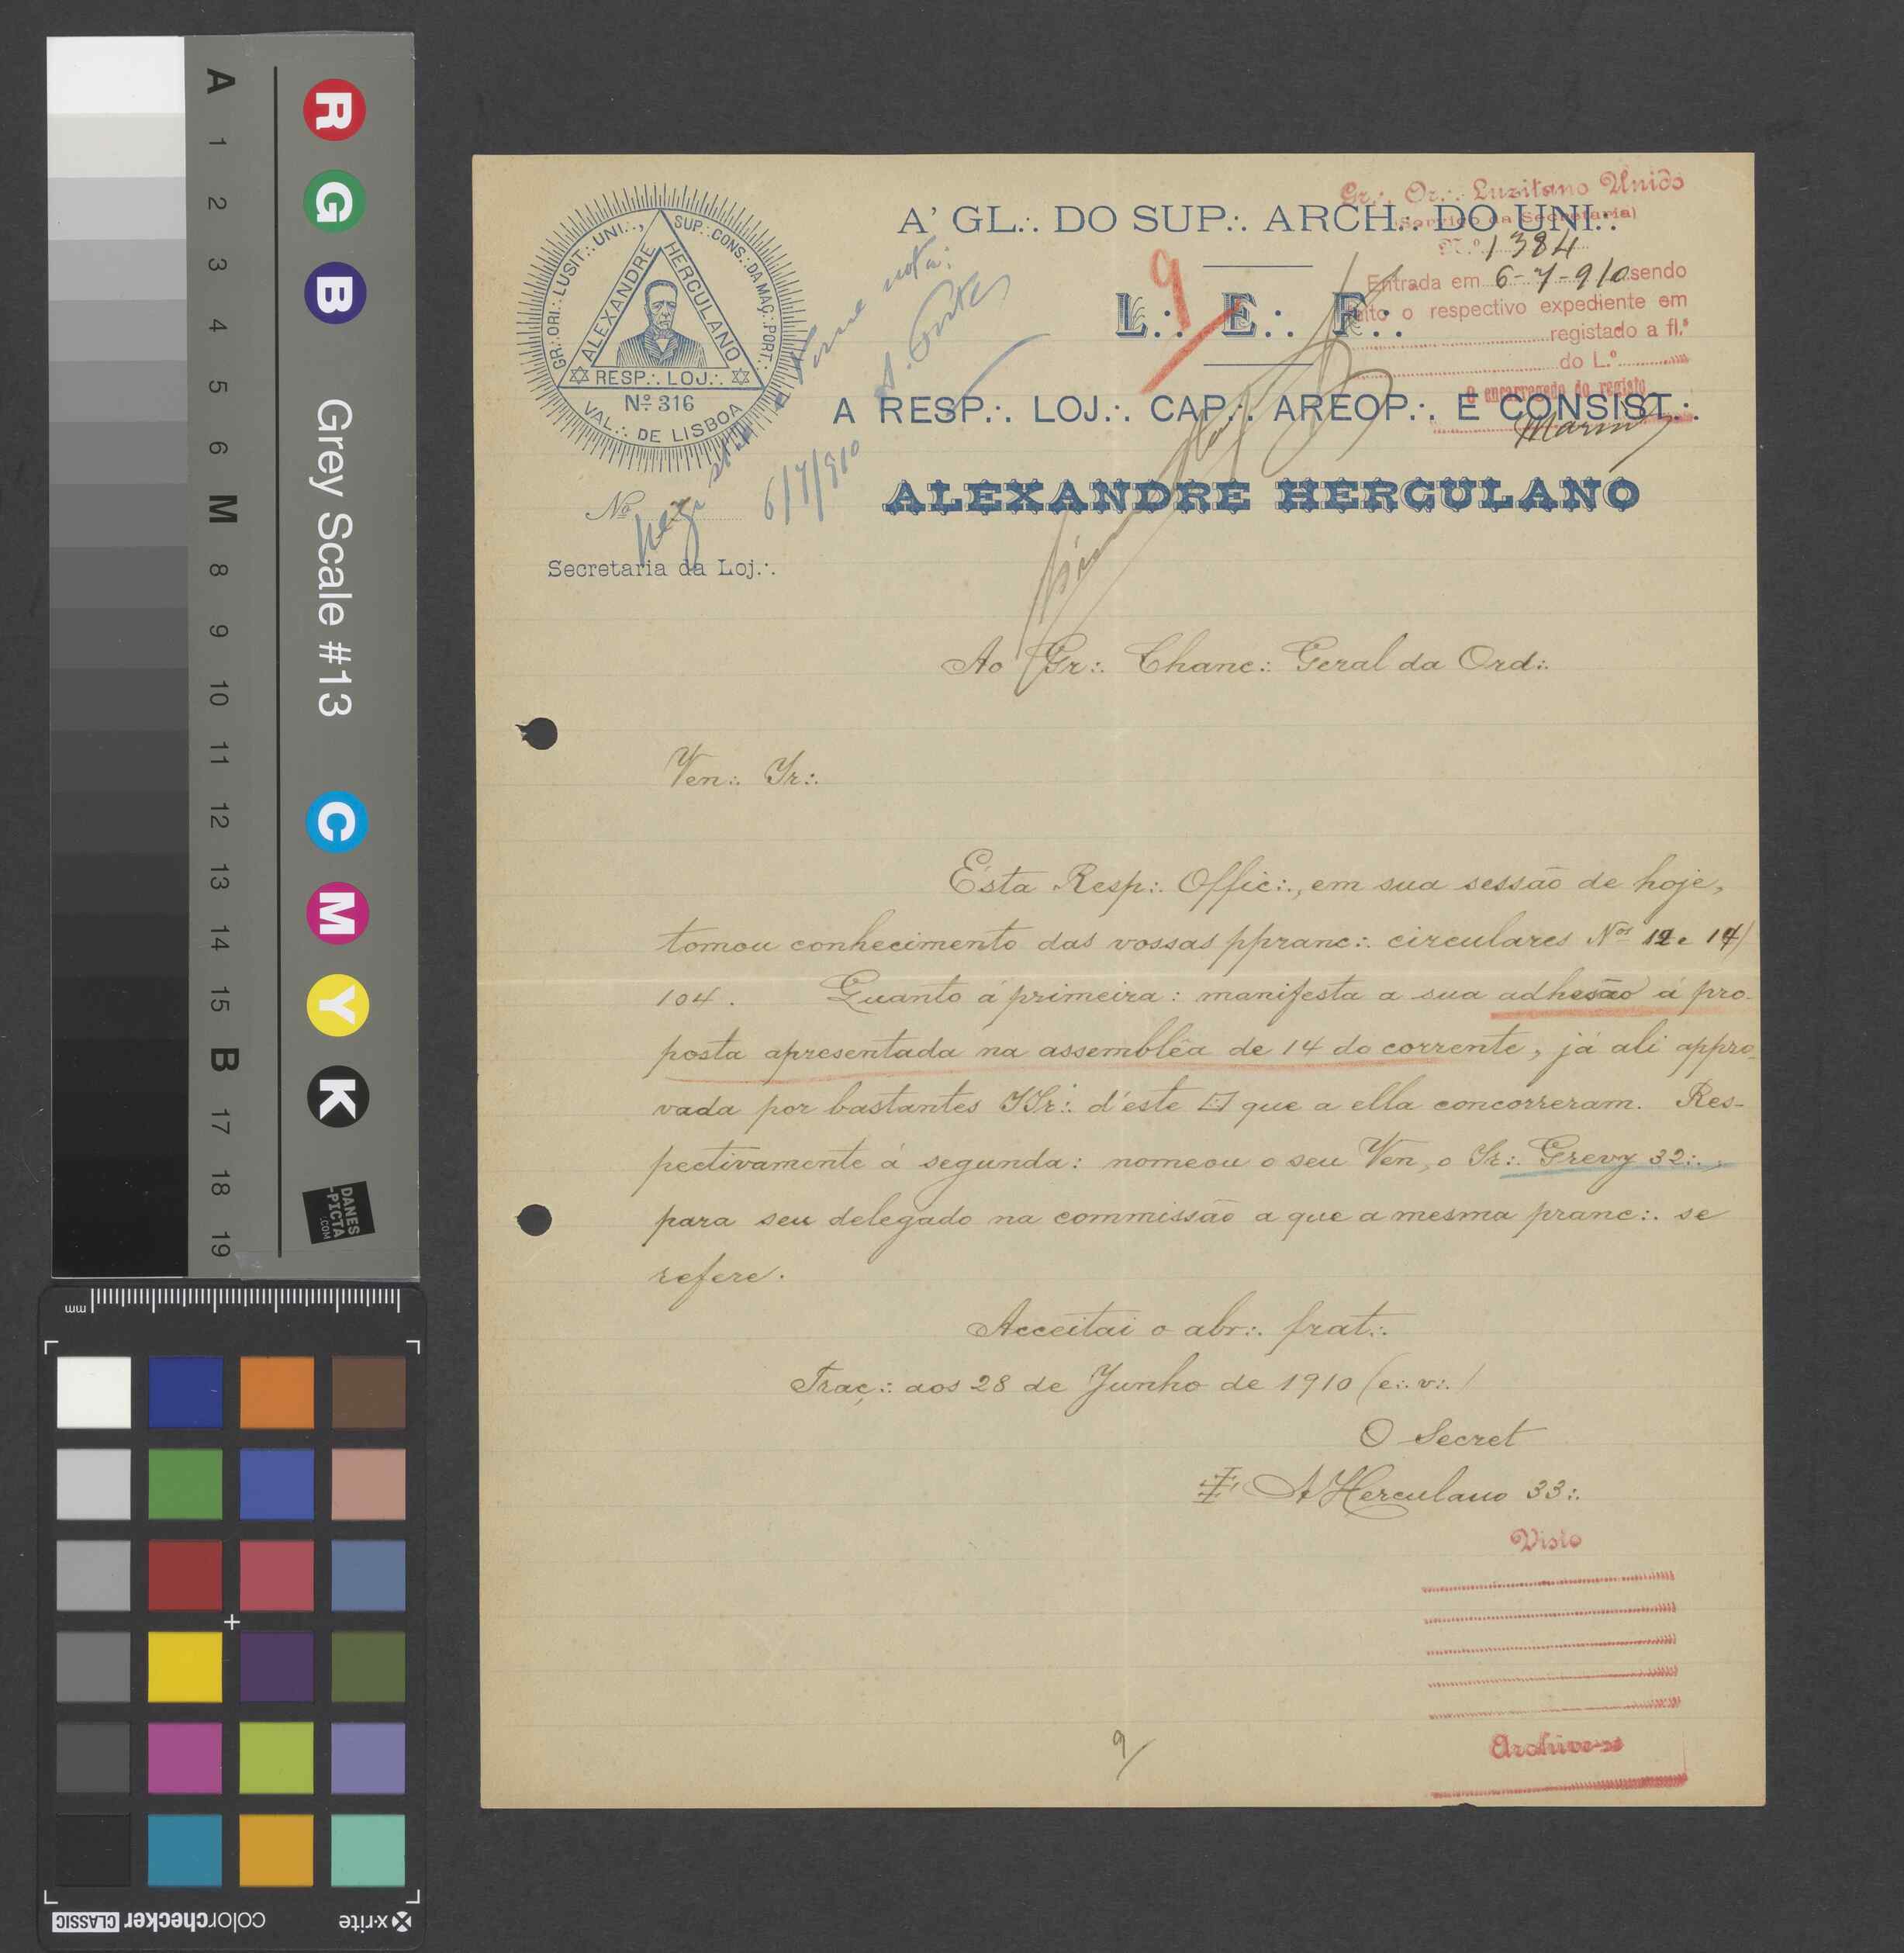 A' GL.·. DO SUP.·. ARCH.·. DO UNI.·.
L.·. E.·. F.·.
A RESP.·. LOJ.·. CAP.·. AREOP.·. E CONSIST.·.
ALEXANDRE HERCULANO
GR.·. ORI.·. LUSIT.·. UNI.·., SUP.·. CONS.·. DA MAÇ.·. PORT.·.
ALEXANDRE HERCULANO
RESP.·. LOJ.·.
Nº 316
VAL.·. DE LISBOA
Nº
Secretaria da Loj.·.
Gr.·. Or.·. Luzitano Unido
(Serviço da Secretaria)
N.º 1384
Entrada em 6-7-910 sendo
feito o respectivo expediente em
registado a fl.ª
do L.º
O encarregado do registo
9
nota:
6/7/910
Ao Gr.·. Chanc.·. Geral da Ord.·.
Ven.·. Ir.·.
Esta Resp.·. Offic.·., em sua sessão de hoje,
tomou conhecimento das vossas ppranc.·. circulares Nos 12 e 14/
104. Quanto á primeira: manifesta a sua adhesão á pro-
posta apresentada na assemblêa de 14 do corrente, já ali appro-
vada por bastantes IIr.·. d'este que a ella concorreram. Res-
pectivamente á segunda: nomeou o seu Ven, o Ir.·. Grevy 32.·.,
para seu delegado na commissão a que a mesma pranc.·. se
refere.
Acceitai o abr.·. frat.·.
Traç.·. aos 28 de Junho de 1910 (e.·. v.·.)
O Secret
A Herculano 33.·.
Visto
Archive-se
9/
R G B C M Y K
Grey Scale #13
A 1 2 3 4 5 6 M 8 9 10 11 12 13 14 15 B 17 18 19
DANES
-PICTA
.COM
mm
x-rite
colorchecker CLASSIC